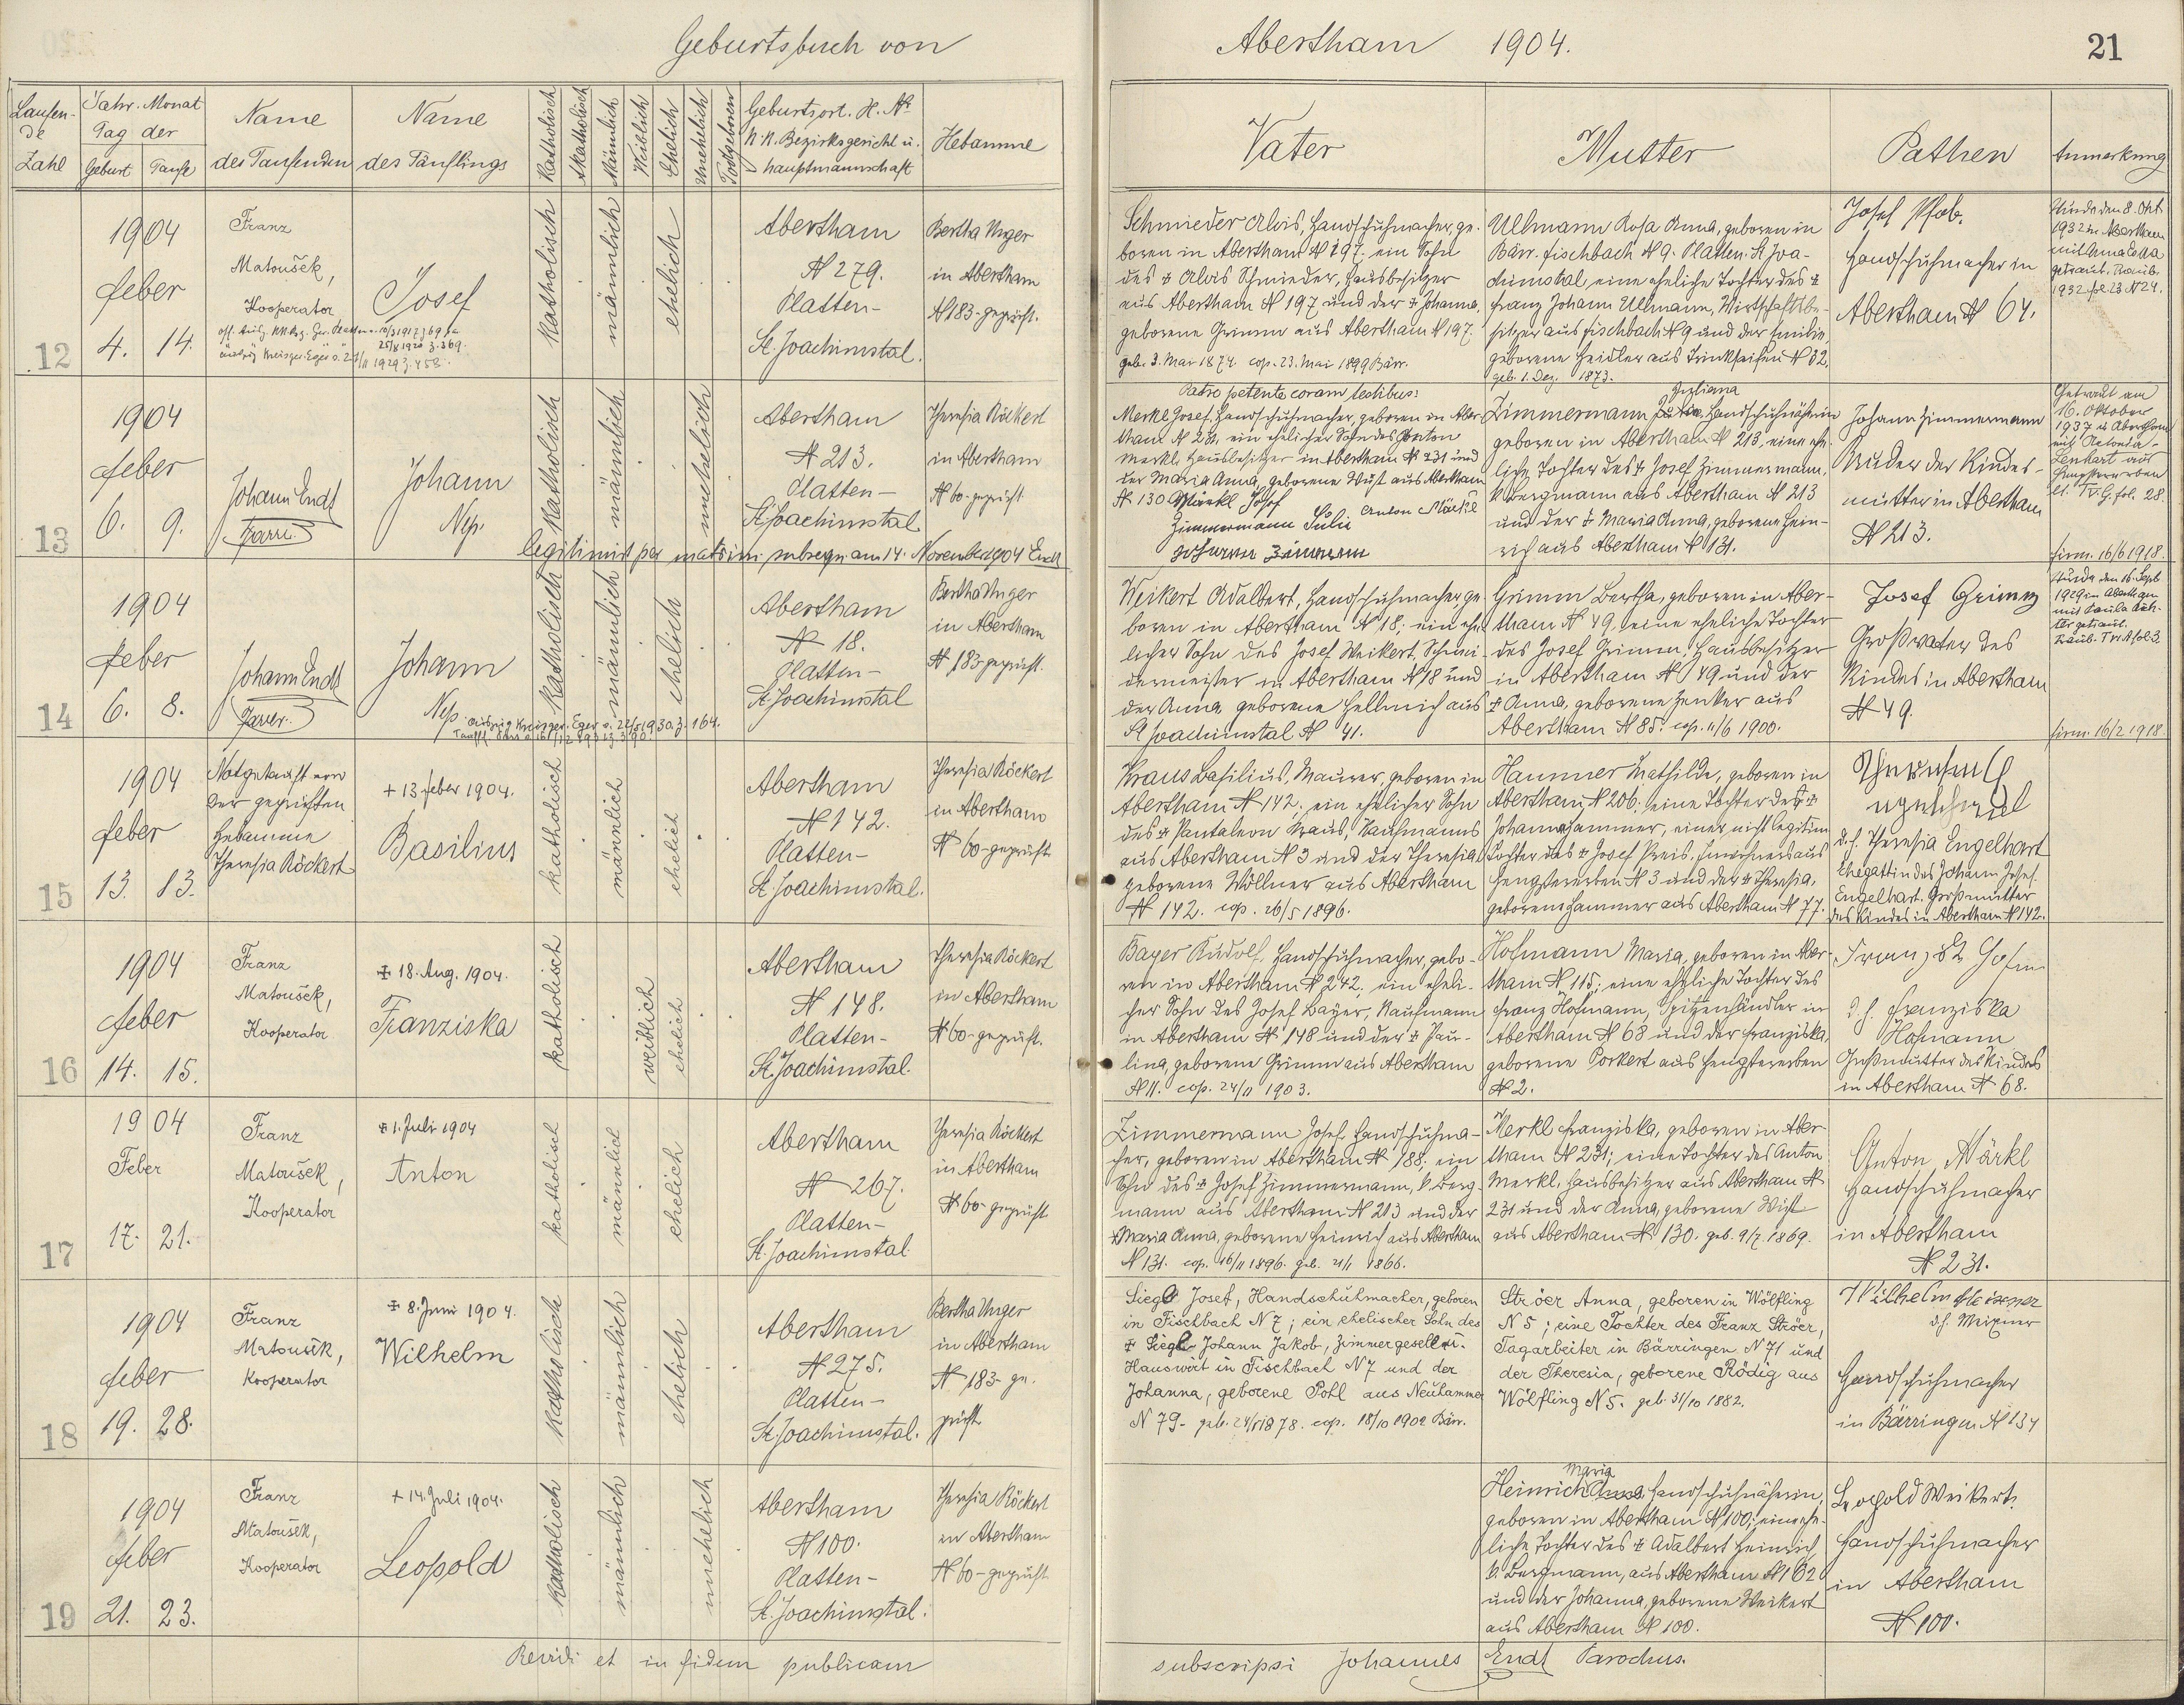 Geburtsbuch von Abertham 1904.
21
Laufende Zahl
Jahr. Monat
Tag der
Geburt Taufe
Name
des Taufenden
Name
des Täuflings
Katholisch
Akatholisch
Männlich
Weiblich
Ehelich
Unehelich
Todtgeboren
Geburtsort. H. No
k. k. Bezirksgericht u.
hauptmannschaft
Hebamme
Vater
Mutter
Pathen
Anmerkung
12
1904
feber
4. 14.
Franz
Matoušek,
Kooperator
Josef
katholisch
männlich
ehelich
Abertham
N 279.
Platten-
St. Joachimstal.
Bertha Unger
in Abertham
N 183-geprüft.
Schmieder Alois, Handschuhmacher, ge-
boren in Abertham N 197; ein Sohn
des ‡ Alois Schmieder, Hausbesitzer
aus Abertham N 197 und der ‡ Johanna,
geborene Grimm aus Abertham N 197.
geb. 3. Mai 1874. cop. 23. Mai 1899 Bärr.
Ullmann Rosa Anna, geboren in
Bärr. Fischbach N 9. Platten. St Joa-
chimstal, eine eheliche Tochter des ‡
Franz Johann Ullmann, Wirtschaftsbe-
sitzer aus Fischbach N 9 und der Emilie,
geborene Heidler aus Trinkseifen N 32.
geb. 1. Dez. 1873.
Josef Pfob.
Handschuhmacher in
Abertham N 64.
Wurde den 8. Okt.
1932 in Abertham
mit Anna
getraut.
1932 fol. 23 N 24.
13
1904
feber
6. 9.
Johann Endt
Pfarrer
Johann
Nep.
katholisch
männlich
unehelich
legitimirt per matrim. subsequ. am 14. November 904 Endt
Abertham
N 213.
Platten-
St Joachimstal
Theresia Röckert
in Abertham
N 60-geprüft
Patro petente coram testibus:
Merkl Josef, Handschuhmacher, geboren in Aber-
tham N 231, ein ehelicher Sohn des Anton
Merkl, Hausbesitzer in Abertham N 231 und
der Maria Anna, geborene Wüst aus Abertham
N 130 Märkl Josef
Anton Märkl
Zimmermann Julie
Juliana
Zimmermann Handschuhnäherin
geboren in Abertham N 213, eine ehe-
liche Tochter des ‡ Josef Zimmermann,
k. Bergmann aus Abertham N 213
und der ‡ Maria Anna, geborene Hein-
rich aus Abertham N 131.
Johann Zimmermann
Bruder der Kindes-
mutter in Abertham
N 213.
Getraut am
16. Oktober
1937 in Abertham
mit Antonia
Lenkert aus
Hengstererben
lt. Tr. G. fol. 28.
firm. 16/6 1918.
14
1904
feber
6. 8.
Johann Endt
Pfarrer
Johann
Nep.
Kreisger. Eger v. 22/5 1930 z. 164.
katholisch
männlich
ehelich
Abertham
N 18.
Platten-
St Joachimstal
Bertha Unger
in Abertham
N 183-geprüft.
Weikert Adalbert, Handschuhmacher ge-
boren in Abertham N 18; ein ehe-
licher Sohn des Josef Weikert, Schnei-
dermeister in Abertham N 18 und
der Anna, geborene Hellmich aus
St Joachimstal N 41.
Grimm Bertha, geboren in Aber-
tham N 49, eine eheliche Tochter
des Josef Grimm, Hausbesitzer
in Abertham N 49 und der
‡ Anna, geborene Zenker aus
Abertham N 85. cop. 11/6 1900.
Josef Grimm
Großvater des
Kindes in Abertham
N 49.
Wurde den 16. Sept
1929 in Abertham
mit Paula
getraut.
firm. 16/2 1918
15
1904
feber
13. 13.
Notgetauft von
der geprüften
Hebamme
Theresia Röckert
+ 13. feber 1904.
Basilius
katholisch
männlich
ehelich
Abertham
N 142.
Platten-
St. Joachimstal.
Theresia Röckert
in Abertham
N 60-geprüft
Kraus Basilius, Maurer, geboren in
Abertham N 142; ein ehelicher Sohn
des ‡ Pantaleon Kraus, Kaufmanns
aus Abertham N 3 und der Theresia,
geborene Wöllner aus Abertham
N 142. cop. 26/5 1896.
Hammer Mathilde, geboren in
Abertham N 206; eine Tochter der ‡
Johanna Hammer, einer nicht legitim.
Tochter des ‡ Josef Preis, Inwohners aus
Hengstererben N 3 und der ‡ Theresia,
geborene Hammer aus Abertham N 77.
d. h. Theresia Engelhart
Ehegattin des Johann Josef
Engelhart, Großmutter
des Kindes in Abertham N 142.
16
1904
feber
14. 15.
Franz
Matoušek,
Kooperator
‡ 18. Aug. 1904.
Franziska
katholisch
weiblich
ehelich
Abertham
N 148.
Platten-
St. Joachimstal.
Theresia Röckert
in Abertham
N 60-geprüft.
Bayer Rudolf, Handschuhmacher, gebo-
ren in Abertham N 242; ein eheli-
cher Sohn des Josef Bayer, Kaufmann
in Abertham N 148 und der ‡ Pau-
lina, geborene Grimm aus Abertham
N 11. cop. 24/11 1903.
Hofmann Maria, geboren in Aber-
tham N 115; eine eheliche Tochter des
Franz Hofmann, Spitzenhändler in
Abertham N 68 und der Franziska,
geborene Porkert aus Hengstererben
N 2.
d. h. Franziska
Hofmann
Großmutter des Kindes
in Abertham N 68.
17
1904
Feber
17. 21.
Franz
Matoušek,
Kooperator
‡ 1. Juli 1904
Anton
katholisch
männlich
ehelich
Abertham
N 267.
Platten-
St. Joachimstal.
Theresia Röckert
in Abertham
N 60-geprüft
Zimmermann Josef, Handschuhma-
cher, geboren in Abertham N 188; ein
Sohn des ‡ Josef Zimmermann, k. Berg-
mann aus Abertham N 213 und der
‡ Maria Anna, geborene Heinrich aus Abertham
N 131. cop. 16/11 1896. geb. 21/1 1866.
Merkl Franziska, geboren in Aber-
tham N 231; eine Tochter des Anton
Merkl, Hausbesitzer aus Abertham N
231 und der Anna, geborene Wüst
aus Abertham N 130. geb. 9/7. 1869.
Anton Märkl
Handschuhmacher
in Abertham
N 231.
18
1904
feber
19. 28.
Franz
Matoušek,
Kooperator
‡ 8. Juni 1904.
Wilhelm
katholisch
männlich
ehelich
Abertham
N 275.
Platten-
St. Joachimstal.
Bertha Unger
in Abertham
N 183- ge-
prüft
Siegl Josef, Handschuhmacher, geboren
in Fischbach N 7; ein ehelicher Sohn des
‡ Siegl Johann Jakob, Zimmergesell u.
Hauswirt in Fischbach N 7 und der
Johanna, geborene Pohl aus Neuhammer
N 79- geb. 24/1 1878. cop. 18/10 1902 Bärr.
Ströer Anna, geboren in Wölfling
N 5; eine Tochter des Franz Ströer,
Tagarbeiter in Bärringen N 71 und
der Theresia, geborene Rödig aus
Wölfling N 5. geb. 31/10 1882.
Wilhelm Meixner
d. h. Meixner
Handschuhmacher
in Bärringen N 134
19
1904
feber
21. 23.
Franz
Matoušek,
Kooperator
+ 14. Juli 1904.
Leopold
katholisch
männlich
unehelich
Abertham
N 100.
Platten-
St. Joachimstal.
Theresia Röckert
in Abertham
N 60-geprüft
Maria
Heinrich Anna Handschuhnäherin,
geboren in Abertham N 100; eine ehe-
liche Tochter des ‡ Adalbert Heinrich,
k. Bergmann, aus Abertham N 162
und der Johanna, geborene Weikert
aus Abertham N 100.
Leopold Weikert.
Handschuhmacher
in Abertham
N 100.
Revidi et in fidem publicam subscripsi Johannes Endt Parochus.